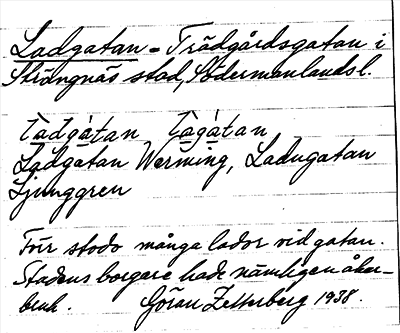 Ladgatan = Trädgårdsgatan i
Strängnäs stad, Södermanlands l.
Ladgatan Werming, Ladugatan
Ljunggren
Förr stodo många lador vid gatan.
Stadens borgare hade nämligen åker-
bruk. Göran Zetterberg 1938.